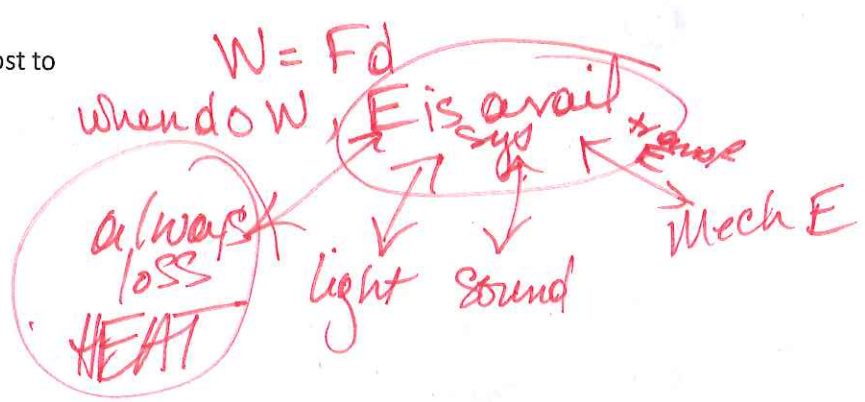 ost to
W = Fd
when do W, E is avail
sys
trans
E
Mech E
always
loss
HEAT
light
sound